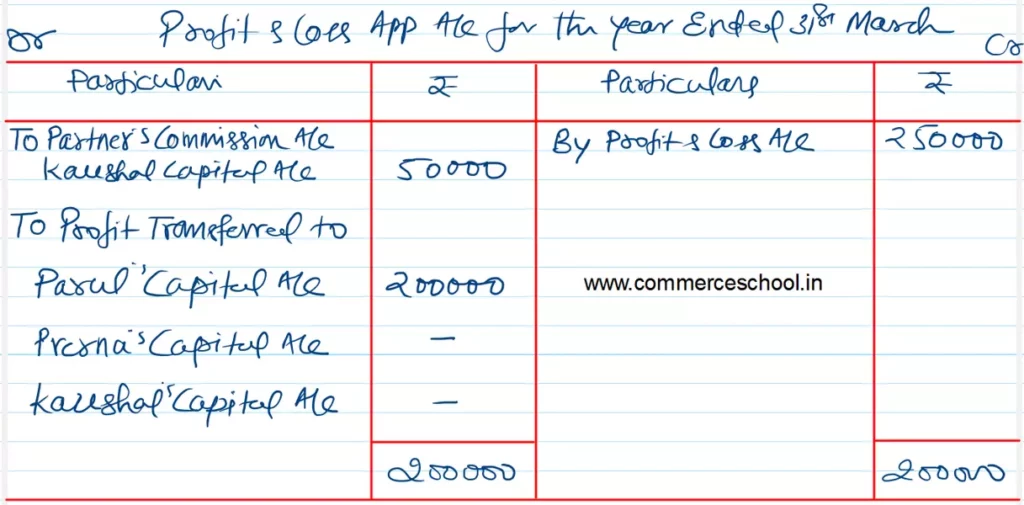 Dr Profit & Loss App A/c for the year Ended 31st March Cr
Particulars ₹ Particulars ₹
To Partner's Commission A/c By Profit & Loss A/c 250000
Kaushal Capital A/c 50000
To Profit Transferred to
Parul's Capital A/c 200000 www.commerceschool.in
Prerna's Capital A/c —
Kaushal's Capital A/c —
200000 200000